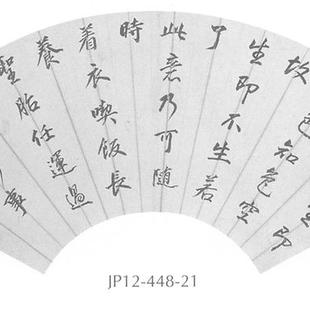 即
色知色空
故
生即不生若
了
此意乃可隨
時
着衣喫飯長
養
聖胎任運過
JP12-448-21